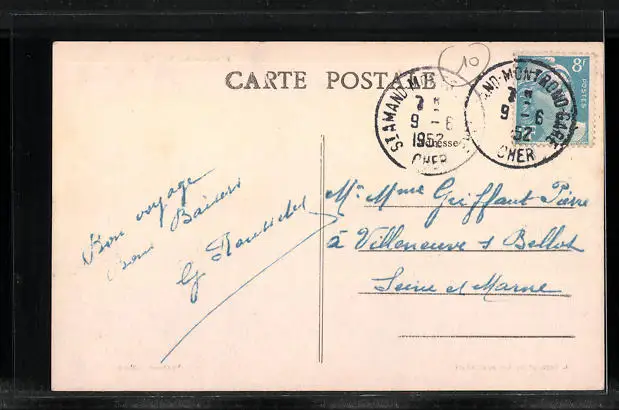 CARTE POSTALE
10
8f
POSTES
ST AMAND-M
7
9 - 6
1952
CHER
AND-MONTROND-GARE
7
9 - 6
52
CHER
Adresse
Bon voyage
Bons Baisers
G.
Mr Mme Griffaut Pierre
à Villeneuve s Bellot
Seine et Marne